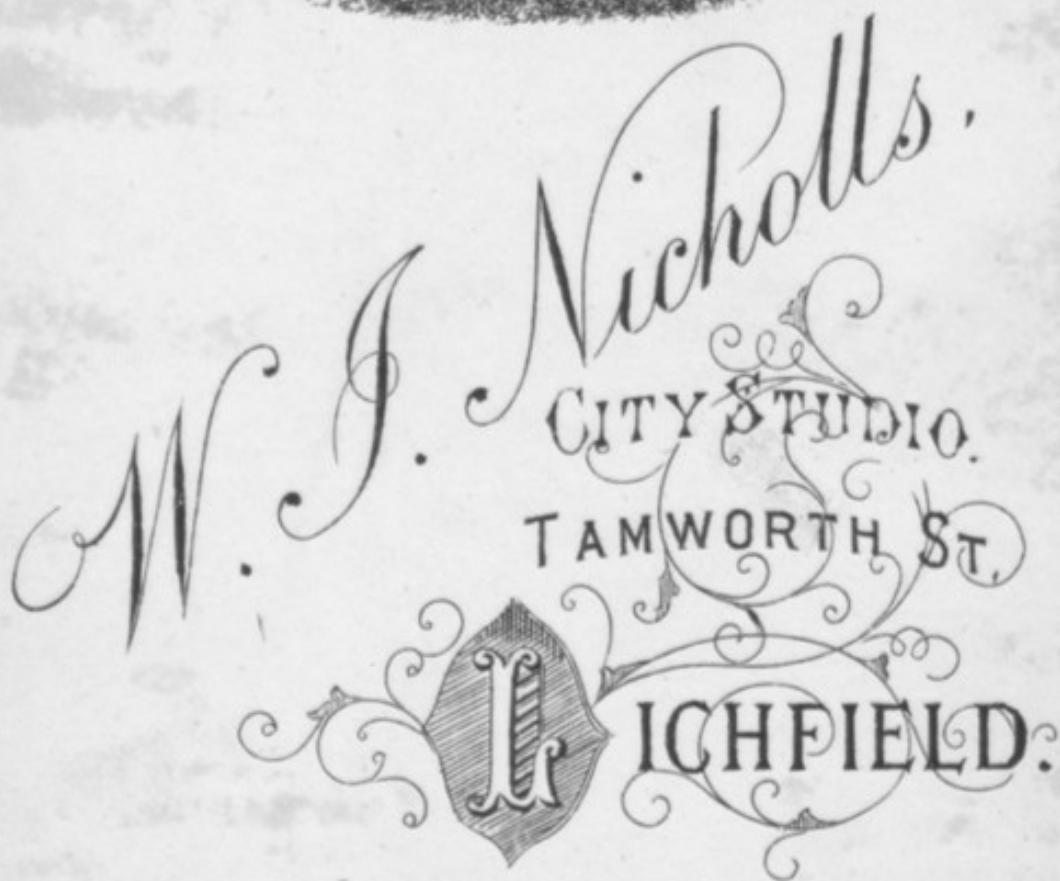 W. J. Nicholls.
CITY STUDIO.
TAMWORTH ST.
LICHFIELD.